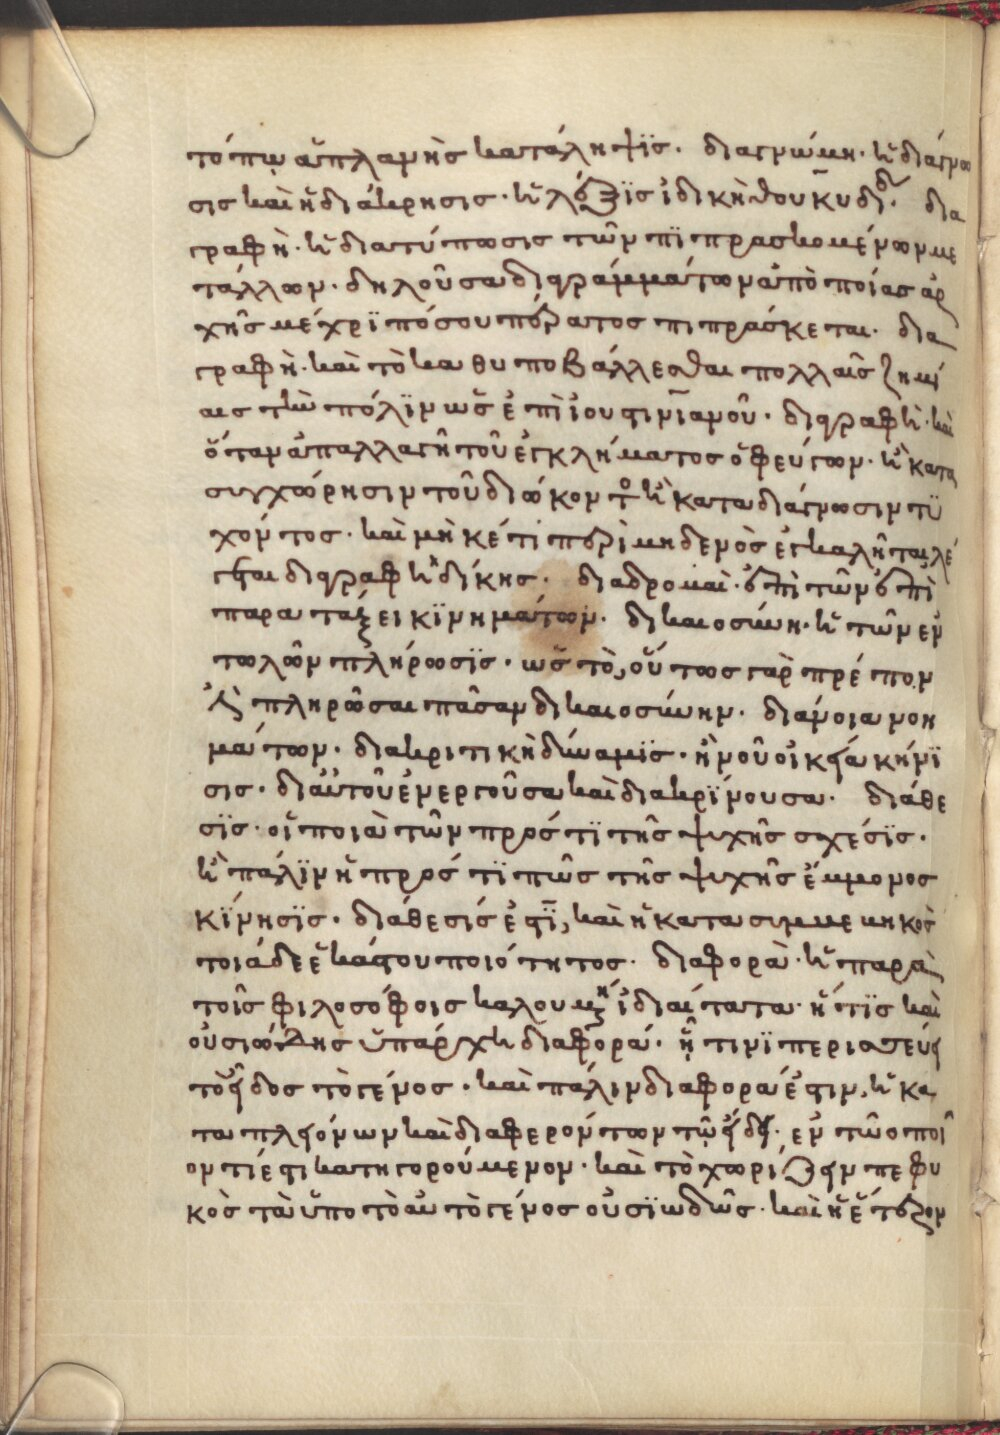 τόπῳ ἀπλανὴς κατάληψϊς· διαγνώμη· ἡ διάγνω
σις καὶ ἡ διάκρησις· ἡ λέξϊς ἰδικὴ θουκυδίδ· δια
γραφὴ· ἡ διατύπωσις τῶν πϊπρασκομένων με
τάλλων· δηλοῦσα διαγράμμάτων ἀπὸ ποίας ἀρ
χῆς μέχρϊ πόσου πέρατος πιπράσκεται· δια
γραφὴ· καὶ τὸ καθυποβάλλεσθαι πολλαῖς ζημί
αις τὴν πόλϊν ὡς ἐπὶ ἰουστινϊανοῦ· διαγραφὴ· καὶ
ὅταν ἀπαλλαγῆ τοῦ ἐγκλήματος ὁ φεύγων· ἢ κατα
συγχώρησιν τοῦ διώκοντο ἢ κατα διάγνωσιν τϋ
χόντος· καὶ μὴκέτι περὶ μηδενὸς ἐγκαλῆται λέ
γεται διαγραφὴ δίκης· διαδρομαὶ· ἐπὶ τῶν ἐπὶ
παρατάξει κϊνημάτων· δικαιοσύνη· ἡ τῶν ἐν
τωλῶν πλήρωσϊς· ὡς τὸ, οὕτως γὰρ πρέπον
ἐστὶ πληρῶσαι πᾶσαν δικαιοσύνην· διάνοια νοη
μάτων· διακριτικὴ δύναμϊς· ἢ νοῦ οἰκεία κήνϊ
σις· δι αὐτοῦ ἐνεργοῦσα καὶ διακρϊνουσα· διάθε
σϊς· οἱ ποιὰ τῶν πρός τϊ τῆς ψυχῆς σχέσϊς·
ἢ πάλϊν ἡ πρός τϊ πῶς τῆς ψυχῆς ἔμμονος
κϊνησϊς· διάθεσίς ἐστϊ, καὶ ἡ κατα συμμεμηκὸς
τοιάδε ἑκάστου ποιότητος· διαφορὰ· ἡ παρὰ
τοῖς φιλοσόφοις καλουμένη ἰδιαίτατα· ἥτϊς καὶ
οὐσιώδης ὑπάρχει διαφορά· ᾗ τινϊ περισσεύει
τὸ εἶδος τὸ γένος· καὶ πάλιν διαφορά ἐστιν, ἡ κα
τα πλειόνων καὶ διαφερόντων τῷ εἴδει· ἐν τῶ ὁποῖ
ον τί ἐστι κατηγορούμενον· καὶ τὸ χωρίζειν πεφυ
κὸς τὰ ὑπο τὸ αὐτὸ γένος οὐσϊωδῶς· καὶ ἡ ἕτερον